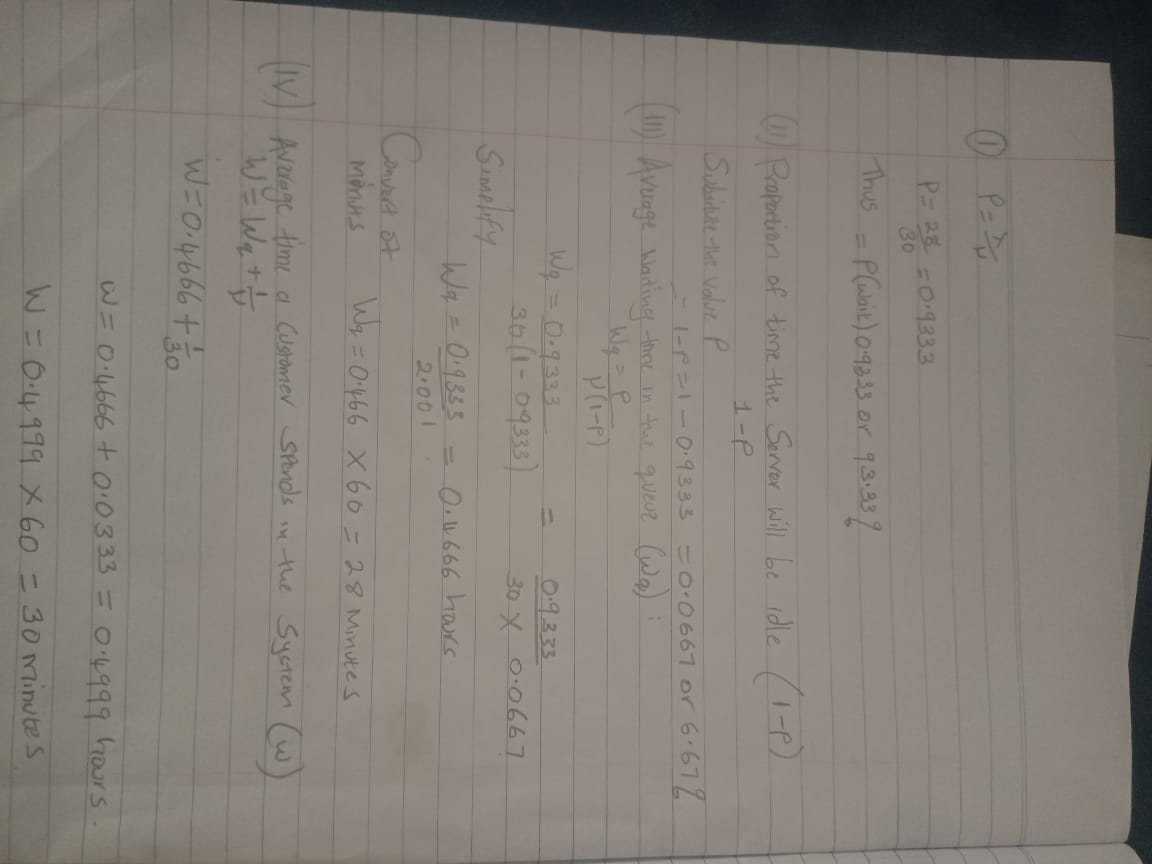 (1) P = λ/μ
P = 28/30 = 0.9333
Thus = P(wait) 0.9333 or 93.33%
(II) Proportion of time the Server will be idle (1-P)
1-P
Substitute the value P
= 1-P = 1 - 0.9333 = 0.0667 or 6.67%
(III) Average waiting time in the queue (Wq) :
Wq = P/μ(1-P)
Wq = 0.9333/30(1-0.9333) = 0.9333/30 X 0.0667
Simplify
Wq = 0.9333/2.001 = 0.4666 hours
Convert
minutes Wq = 0.466 X 60 = 28 Minutes
(IV) Average time a Customer Spends in the System (W)
W = Wq + 1/μ
W = 0.4666 + 1/30
W = 0.4666 + 0.0333 = 0.4999 hours.
W = 0.4999 X 60 = 30 minutes